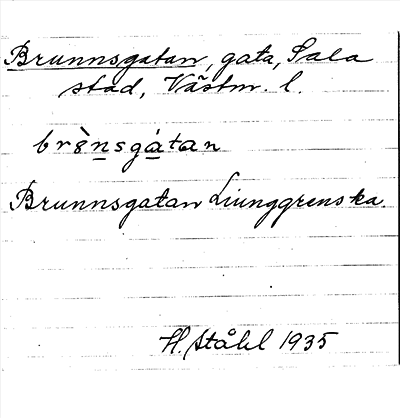 Brunnsgatan, gata, Sala
stad, Västm. l.
brs̀nsgátan
Brunnsgatan Liunggrenska.
H. Ståhl 1935